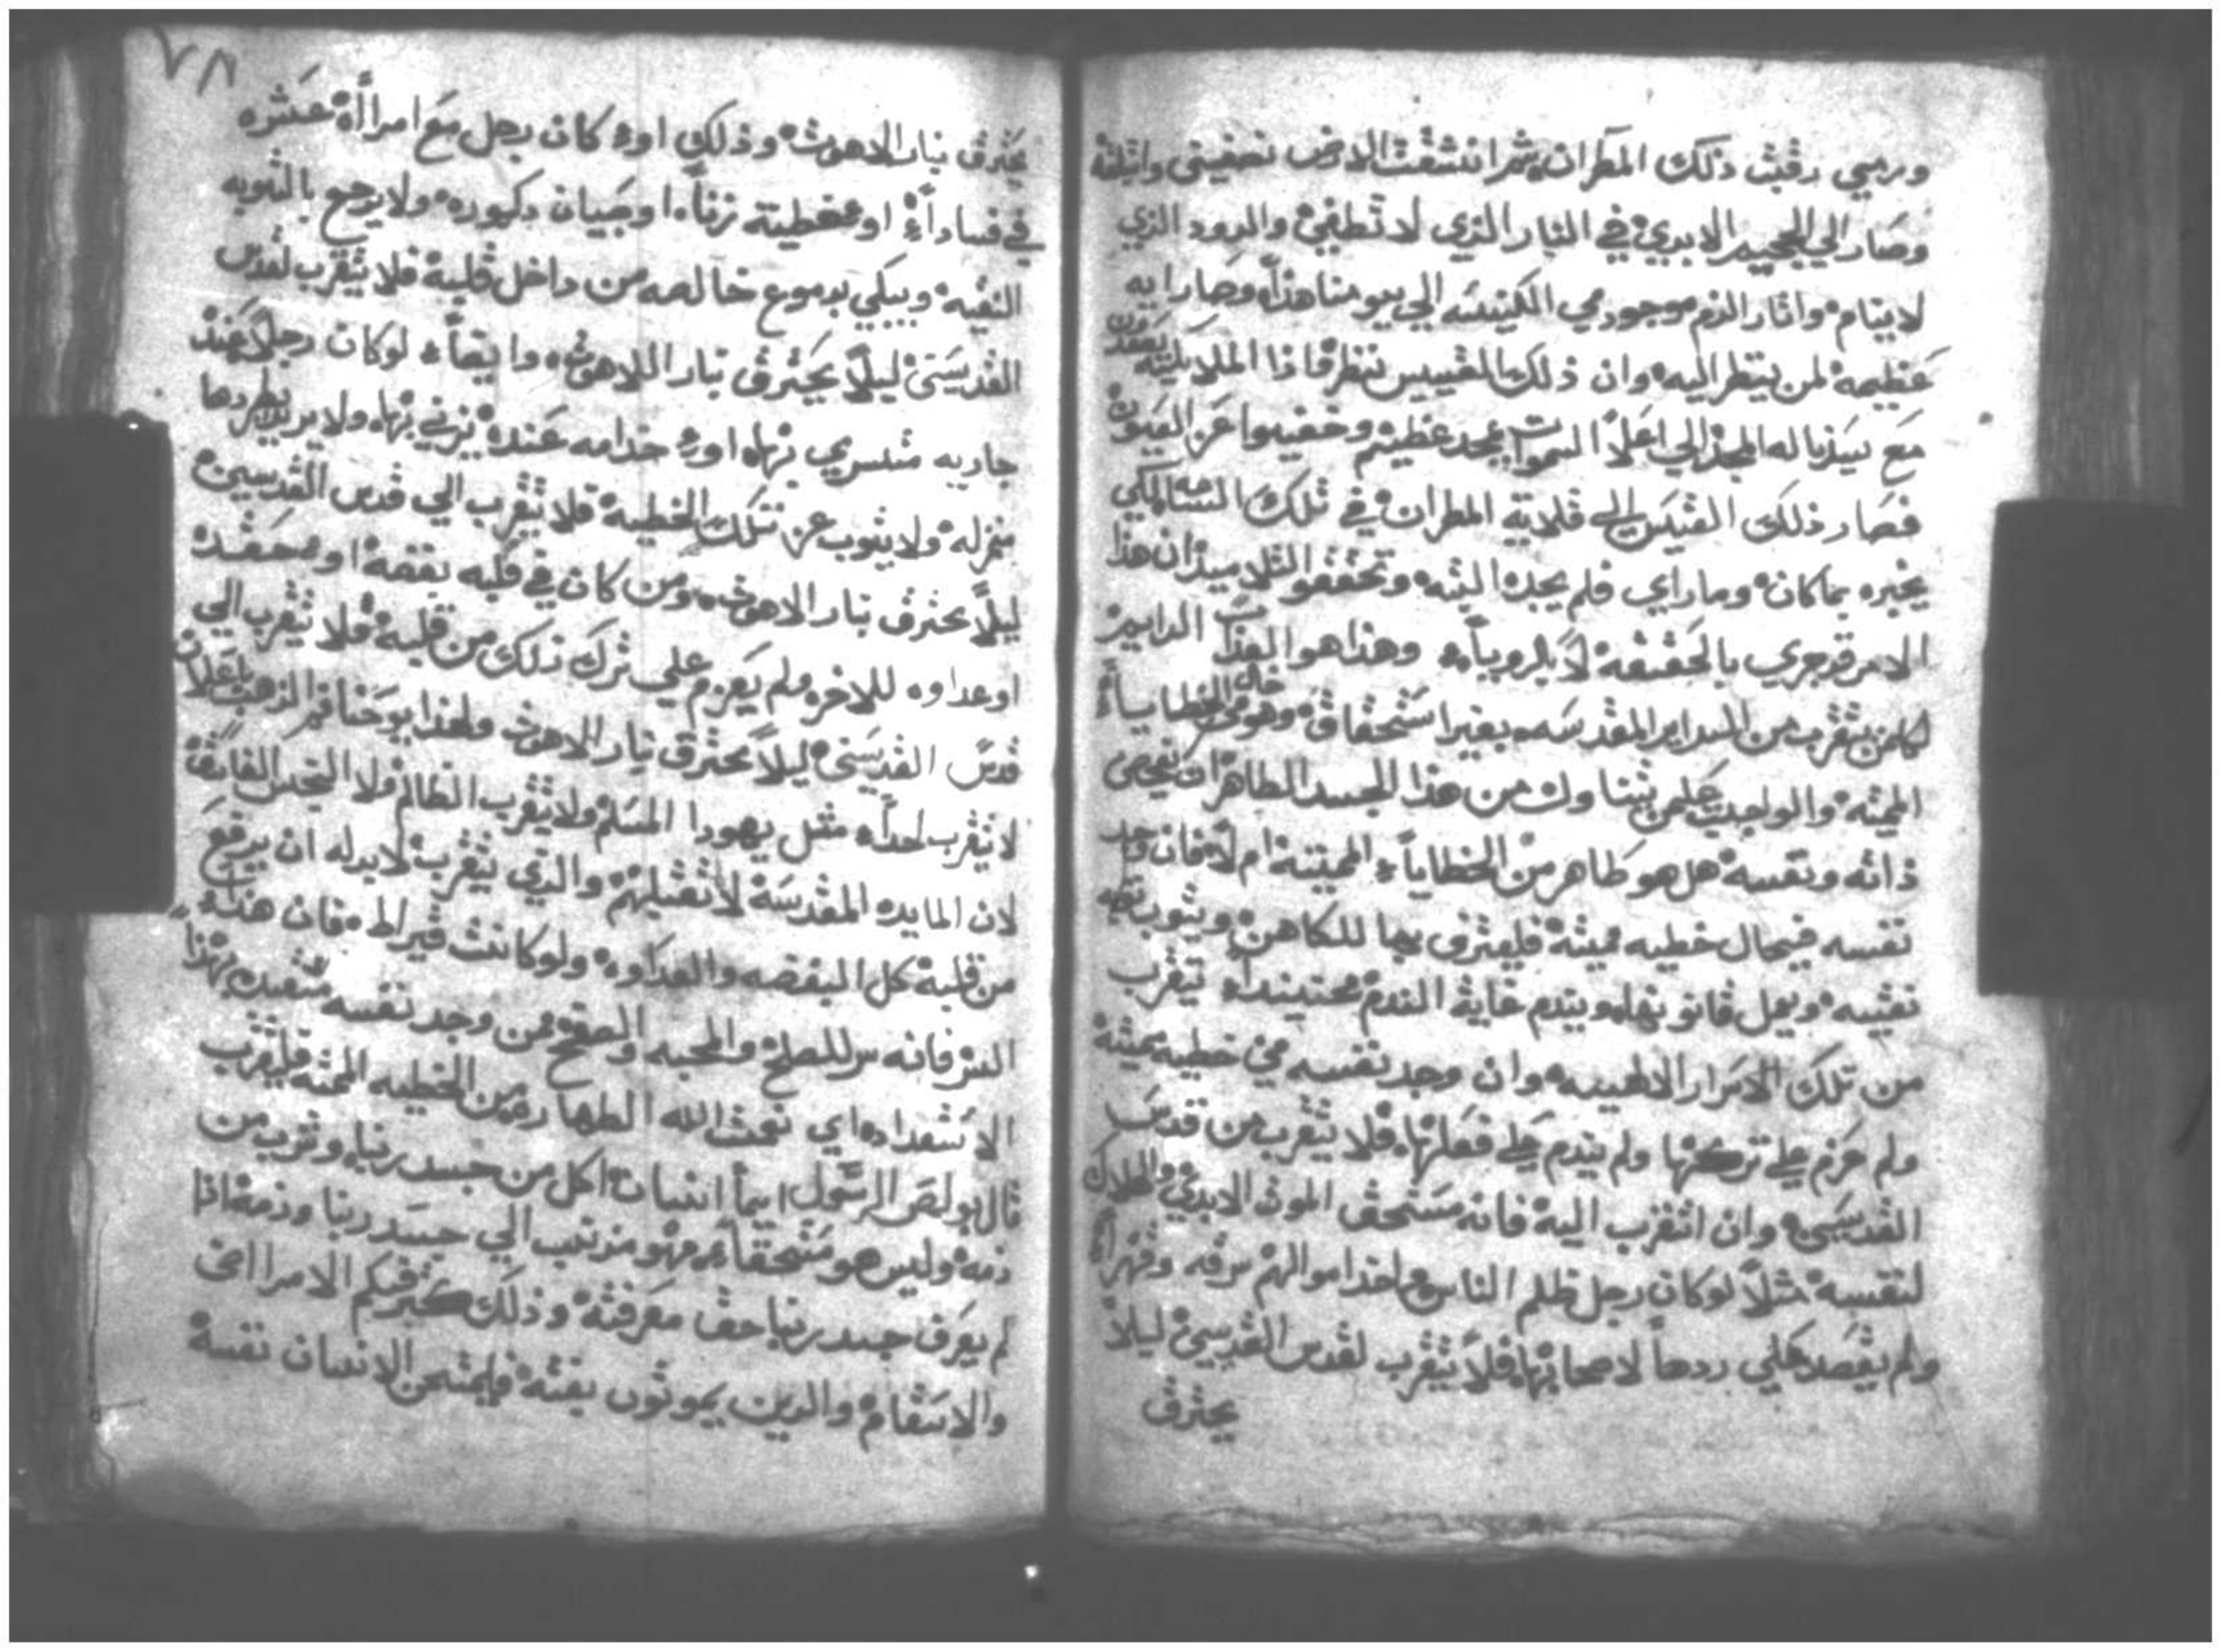 ورمي رقبت ذلك المطران ثم انشقت الارض نصفين وابتلته
وصار الي الجحيم الابدي في النار الذي لا تطفي والدود الذي
لا ينام واثار الدم موجود في الكنيسه الي يومنا هذا وصار ايه
عظيمة لمن ينظر اليه وان ذلك القسيس نظر فاذا الملايكه يصعدون
مع سيدنا له المجد الي اعلا السموات بمجد عظيم وخفيوا عن العيون
فصار ذلك القسيس الي قلاية المطران في تلك الساعه لكي
يخبره بما كان وما راي فلم يجده البته وتحققو التلاميذ ان هذا
الامر قد جري بالحقيقة لا بالرويا وهذا هو العذاب الدايم
لكلمن يتقرب من السراير المقدسه بغير استحقاق وهو في حال الخطايا
المميته والواجب علي من يتناول من هذا الجسد الطاهر ان يفحص
ذاته ونفسه هل هو طاهر من الخطايا المميتة ام لا فان وجد
نفسه في حال خطيه مميته فليعترف بها للكاهن ويتوب توبه
نقيه ويعمل قانونها ويندم غاية الندم حينيذا يتقرب
من تلك الاسرار الالهيه وان وجد نفسه في خطيه مميتة
ولم عزم علي تركها ولم يندم علي فعلها فلا يتقرب من قدس
القديسين وان اتقرب اليه فانه مستحق الموت الابدي والهلاك
لنفسه مثلا لو كان رجل ظلم الناس واخد اموالهم سرقه وقهرا
ولم يقصد علي ردها لاصحابها فلا يتقرب لقدس القديسين ليلا
يحترق
٧٨
يحترق بنار الاهوت وذلك او كان رجل مع امراة عشره
في فسادا او خطية زنا او صبيان دكوره ولا يرجع بالتوبه
النقيه ويبكي بدموع خالصه من داخل قلبه فلا يتقرب لقدس
القديسين ليلا يحترق بنار اللاهوت وايضا لو كان رجلا عنده
جاريه متسري بها او خدامه عنده يزني بها ولا يريد يطردها
من منزله ولا يتوب عن تلك الخطيه فلا يتقرب الي قدس القديسين
ليلا يحترق بنار الاهوت ومن كان في قلبه بغضه او حقده
او عداوه للاخر ولم يعزم علي ترك ذلك من قلبه فلا يتقرب الي
قدس القديسين ليلا يحترق بنار الاهوت ولهذا يوحنا فم الذهب
لا يتقرب احدا مثل يهودا المسلم ولا يتقرب الظالم ولا النجس الفاسق
لان المايده المقدسة لا تقبلهم والذي يتقرب لا بد له ان يرفع
من قلبه كل البغضه والعداوه ولو كانت قيراط فان هذا
السر فانه سر للصلح والمحبه والصفح فمن وجد نفسه متقيد بهذا
الاستعداد اي نعمت الله الطهاره من الخطيه المميته فليتقرب
قال بولص الرسول ايما انسان اكل من جسد ربنا وشرب من
دمه وليس هو مستحقا فهو مرتهب الي جسد ربنا ودمه اذا
لم يعرف جسد ربنا حق معرفته وذلك كتر فيكم الامراض
والاسقام والدين يموتون بغته فليمتحن الانسان نفسه